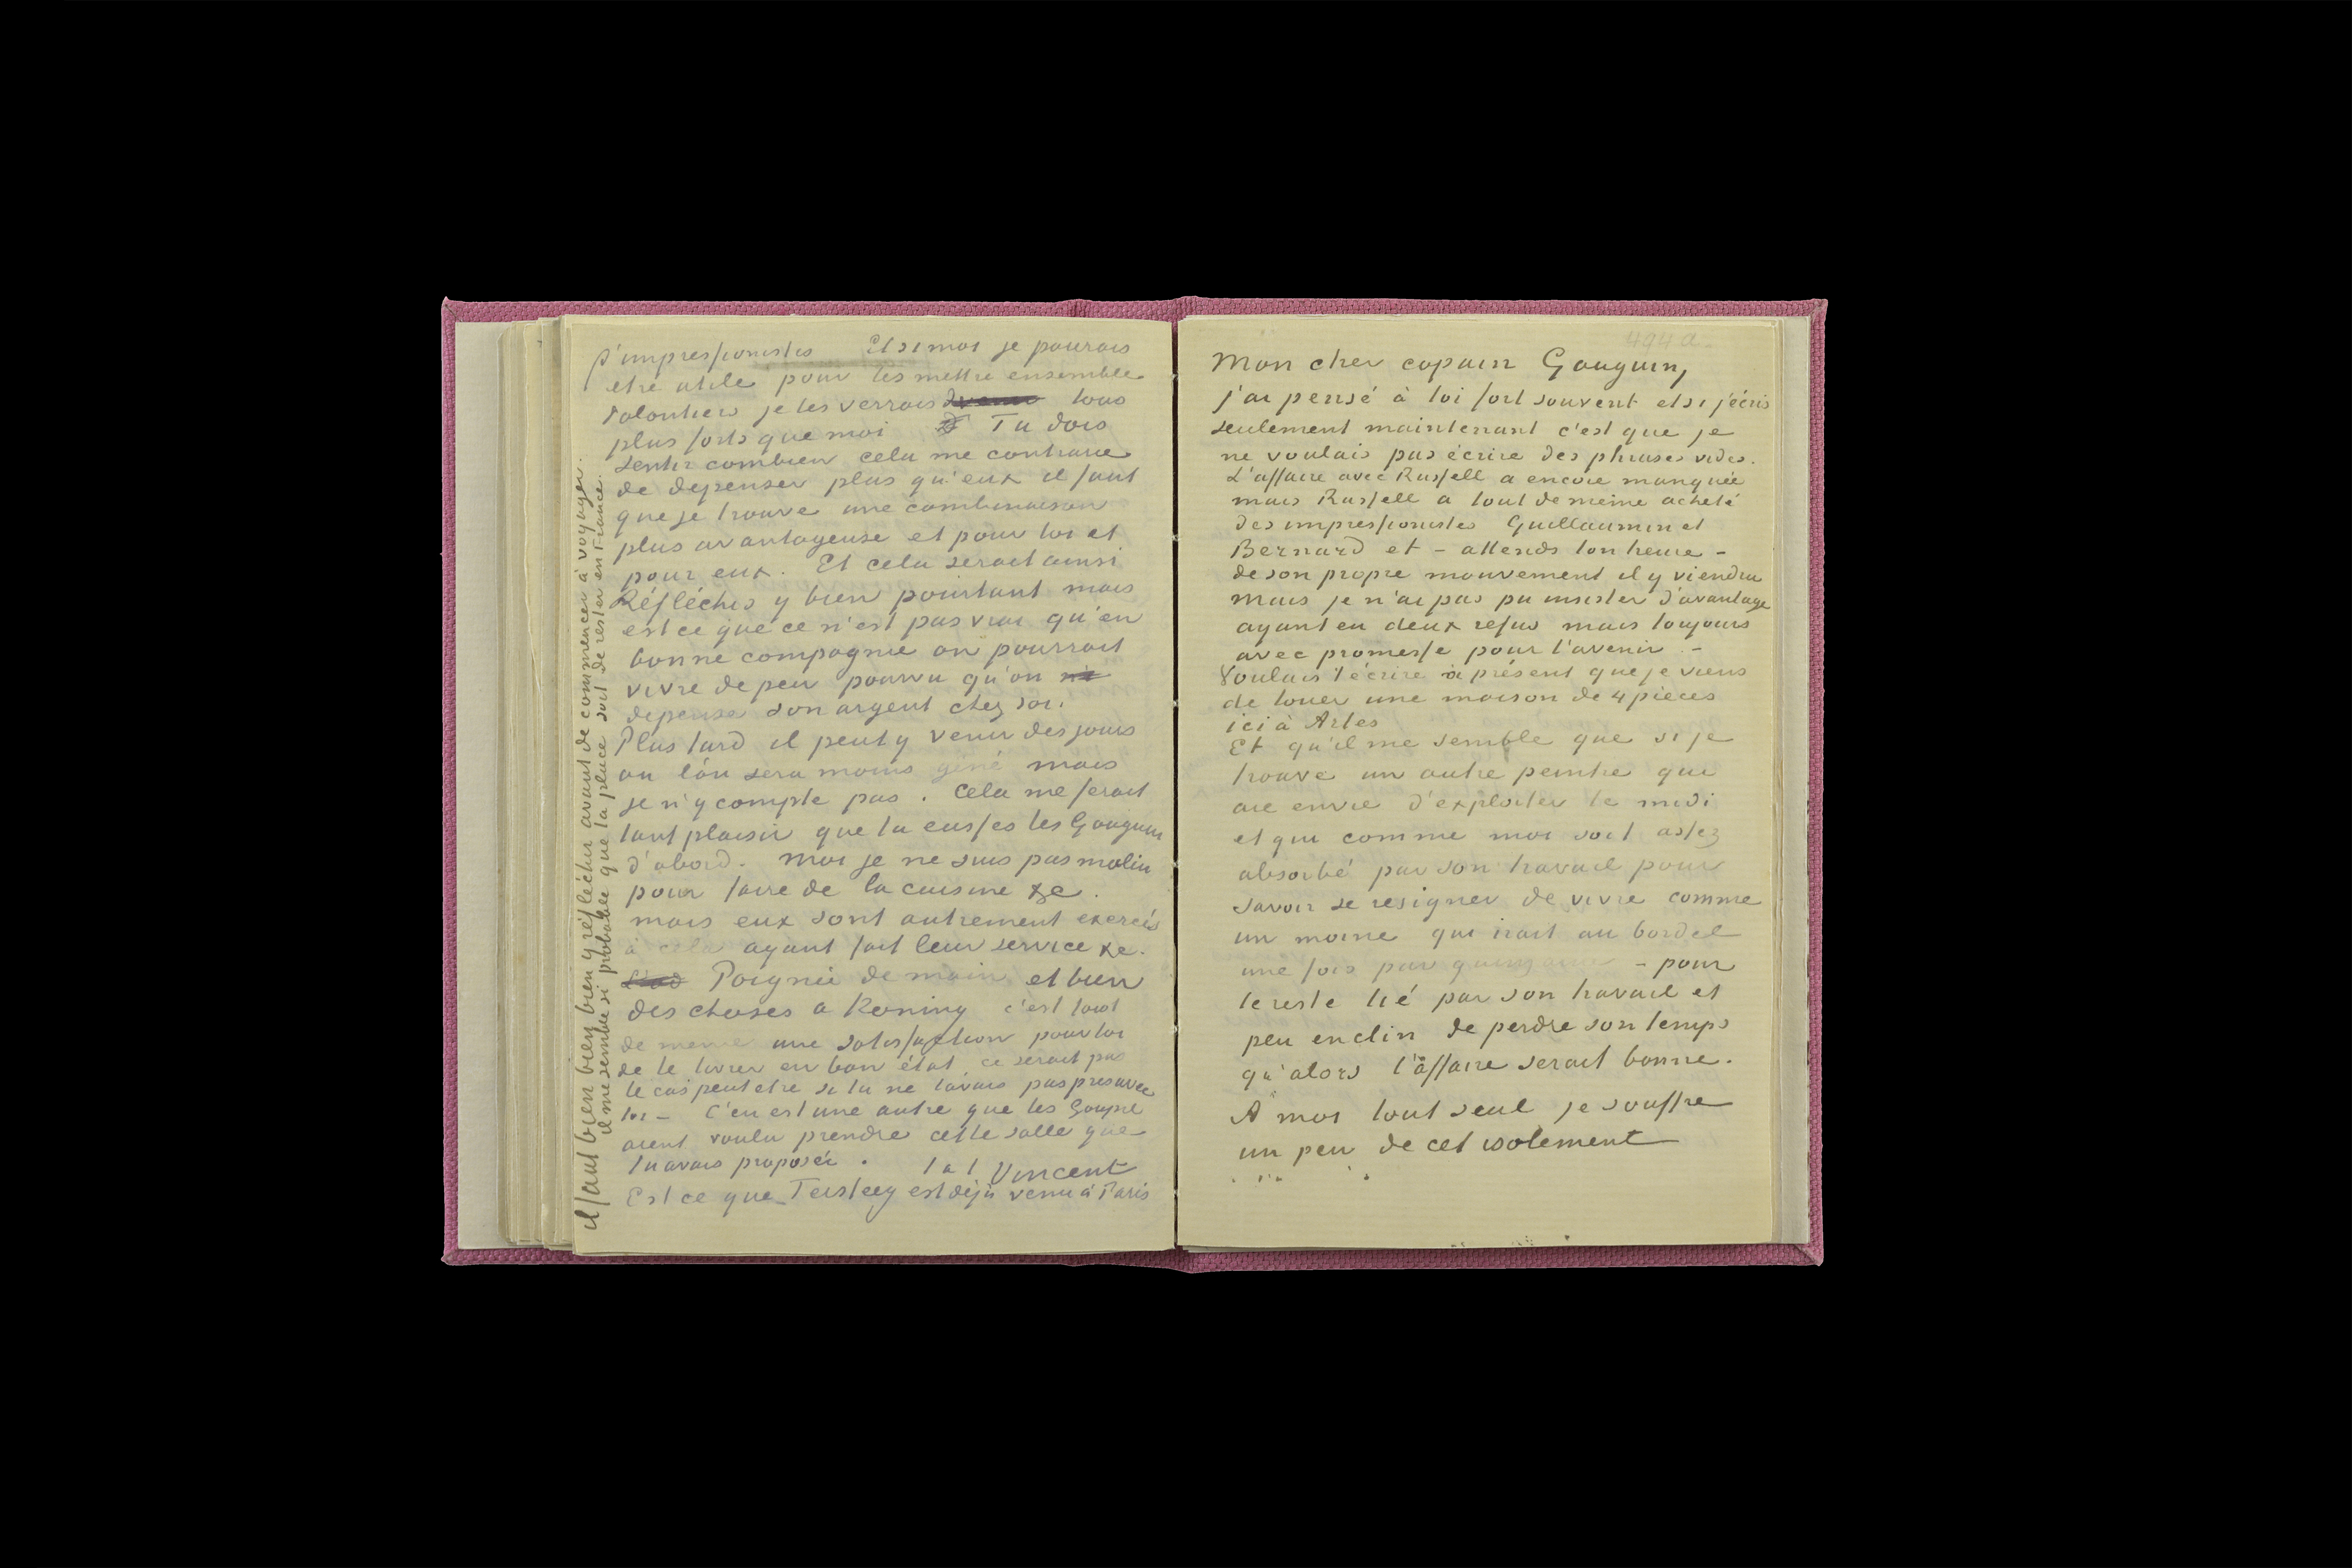 d'impressionistes Et si moi je pourais
etre utile pour les mettre ensemble
volontiers je les verrais devenir tous
plus forts que moi Tu dois
sentir combien cela me contrarie
de depenser plus qu'eux il faut
que je trouve une combinaison
plus avantageuse et pour toi et
pour eux. Et cela serait ainsi
Réfléchis y bien pourtant mais
est ce que ce n'est pas vrai qu'en
bonne compagnie on pourrait
vivre de peu pourvu qu'on
depense son argent chez soi.
Plus tard il peut y venir des jours
ou l'on sera moins gêné mais
je n'y compte pas. Cela me ferait
tant plaisir que tu eusses les Gauguin
d'abord. Moi je ne suis pas malin
pour faire de la cuisine &c.
mais eux sont autrement exercés
à cela ayant fait leur service &c.
Poignée de main et bien
des choses a Koning c'est tout
de meme une satisfaction pour toi
de le livrer en bon état, ce serait pas
le cas peutetre si tu ne l'avais pas pris avec
toi – C'en est une autre que les Goupil
aient voulu prendre cette salle que
tu avais proposée. t. à t. Vincent
Est ce que Tersteeg est déjà venu à Paris
il faut bien bien bien y réfléchir avant de commencer à voyager.
il me semble si probable que ta place soit de rester en France.
494 a
Mon cher copain Gauguin,
j'ai pensé à toi fort souvent et si j'écris
seulement maintenant c'est que je
ne voulais pas écrire des phrases vides.
L'affaire avec Russell a encore manquée
mais Russell a tout de meme acheté
des impressionistes Guillaumin et
Bernard et – attends ton heure –
de son propre mouvement il y viendra
mais je n'ai pas pu insister d'avantage
ayant eu deux refus mais toujours
avec promesse pour l'avenir. –
Voulais t'écrire à présent que je viens
de louer une maison de 4 pieces
ici à Arles
Et qu'il me semble que si je
trouve un autre peintre qui
aie envie d'exploiter le midi
et qui comme moi soit assez
absorbé par son travail pour
savoir se resigner de vivre comme
un moine qui irait au bordel
une fois par quinzaine – pour
le reste lié par son travail et
peu enclin de perdre son temps
qu'alors l'affaire serait bonne.
A moi tout seul je souffre
un peu de cet isolement